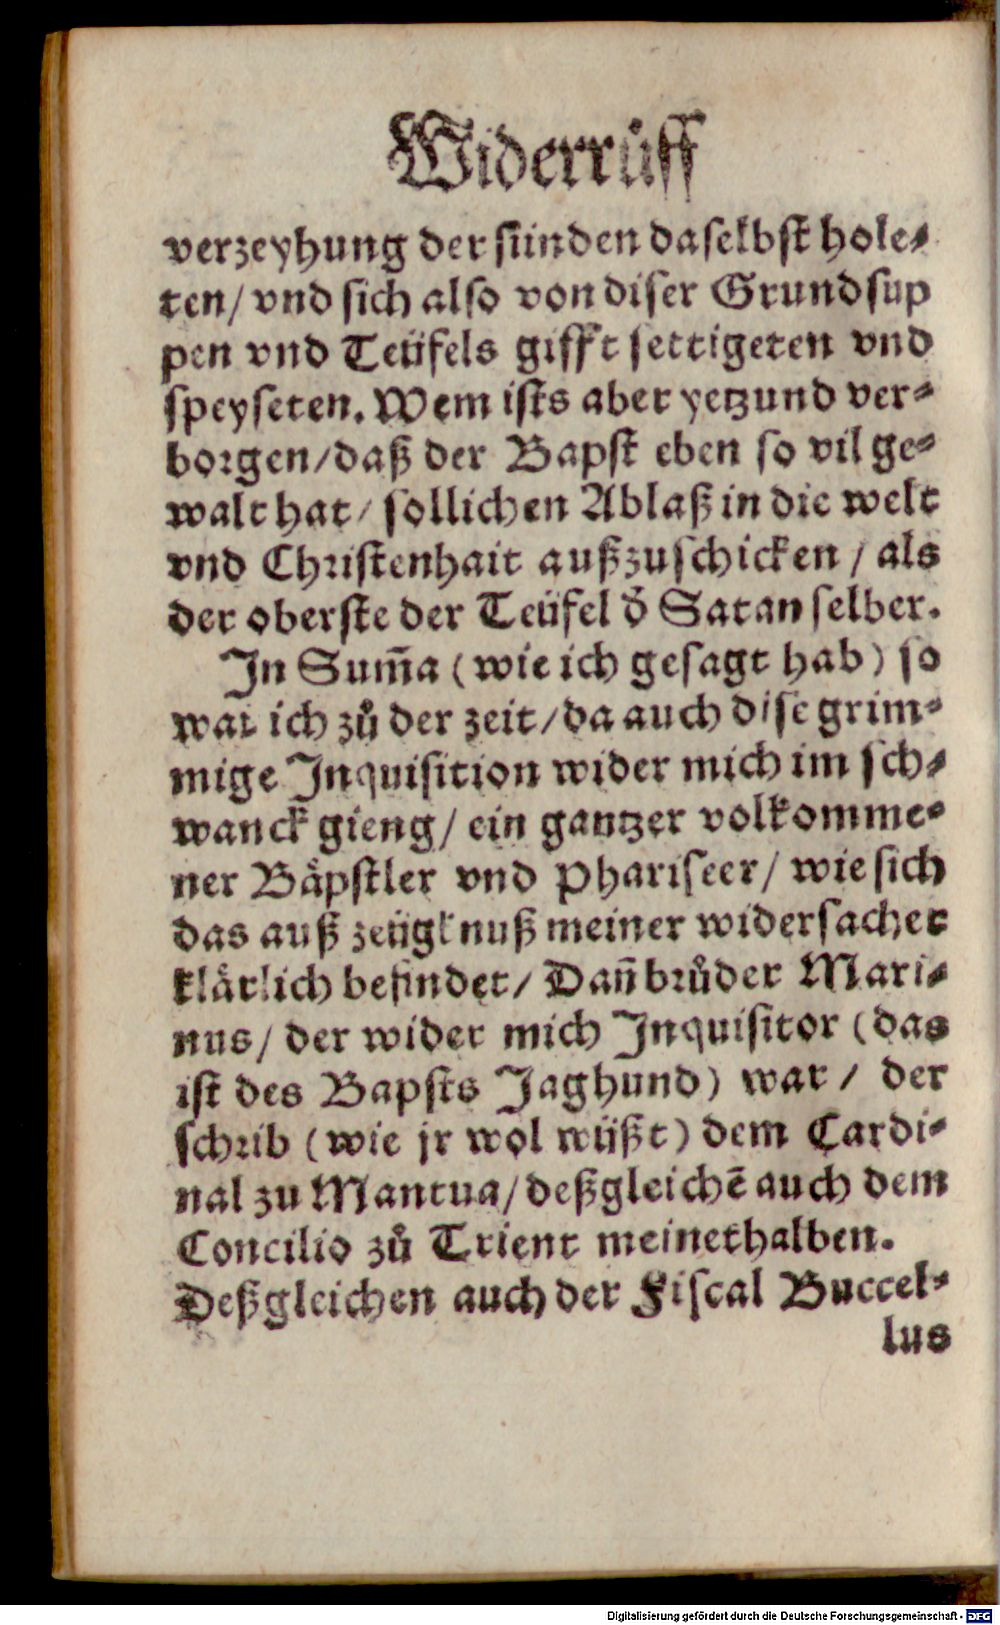 Widerrůff
verzeyhung der sünden daselbst hole⸗
ten/ vnd sich also von diser Grundsup
pen vnd Teüfels gifft settigeten vnd
speyseten. Wem ists aber yetzund ver⸗
borgen/daß der Bapst eben so vil ge⸗
walt hat/ sollichen Ablaß in die welt
vnd Christenhait außzuschicken / als
der oberste der Teüfel d̄ Satan selber.
In Sum̄a (wie ich gesagt hab) so
war ich zů der zeit/da auch dise grim⸗
mige Inquisition wider mich im sch⸗
wanck gieng/ ein gantzer volkomme⸗
ner Bäpstler vnd Phariseer/ wie sich
das auß zeügknuß meiner widersacher
klärlich befindet/ Dan̄ brůder Mari⸗
nus/ der wider mich Inquisitor (das
ist des Bapsts Jaghund) war / der
schrib (wie jr wol wüßt) dem Cardi⸗
nal zu Mantua/deßgleichē auch dem
Concilio zů Trient meinethalben.
Deßgleichen auch der Fiscal Buccel⸗
lus
Digitalisierung gefördert durch die Deutsche Forschungsgemeinschaft - DFG